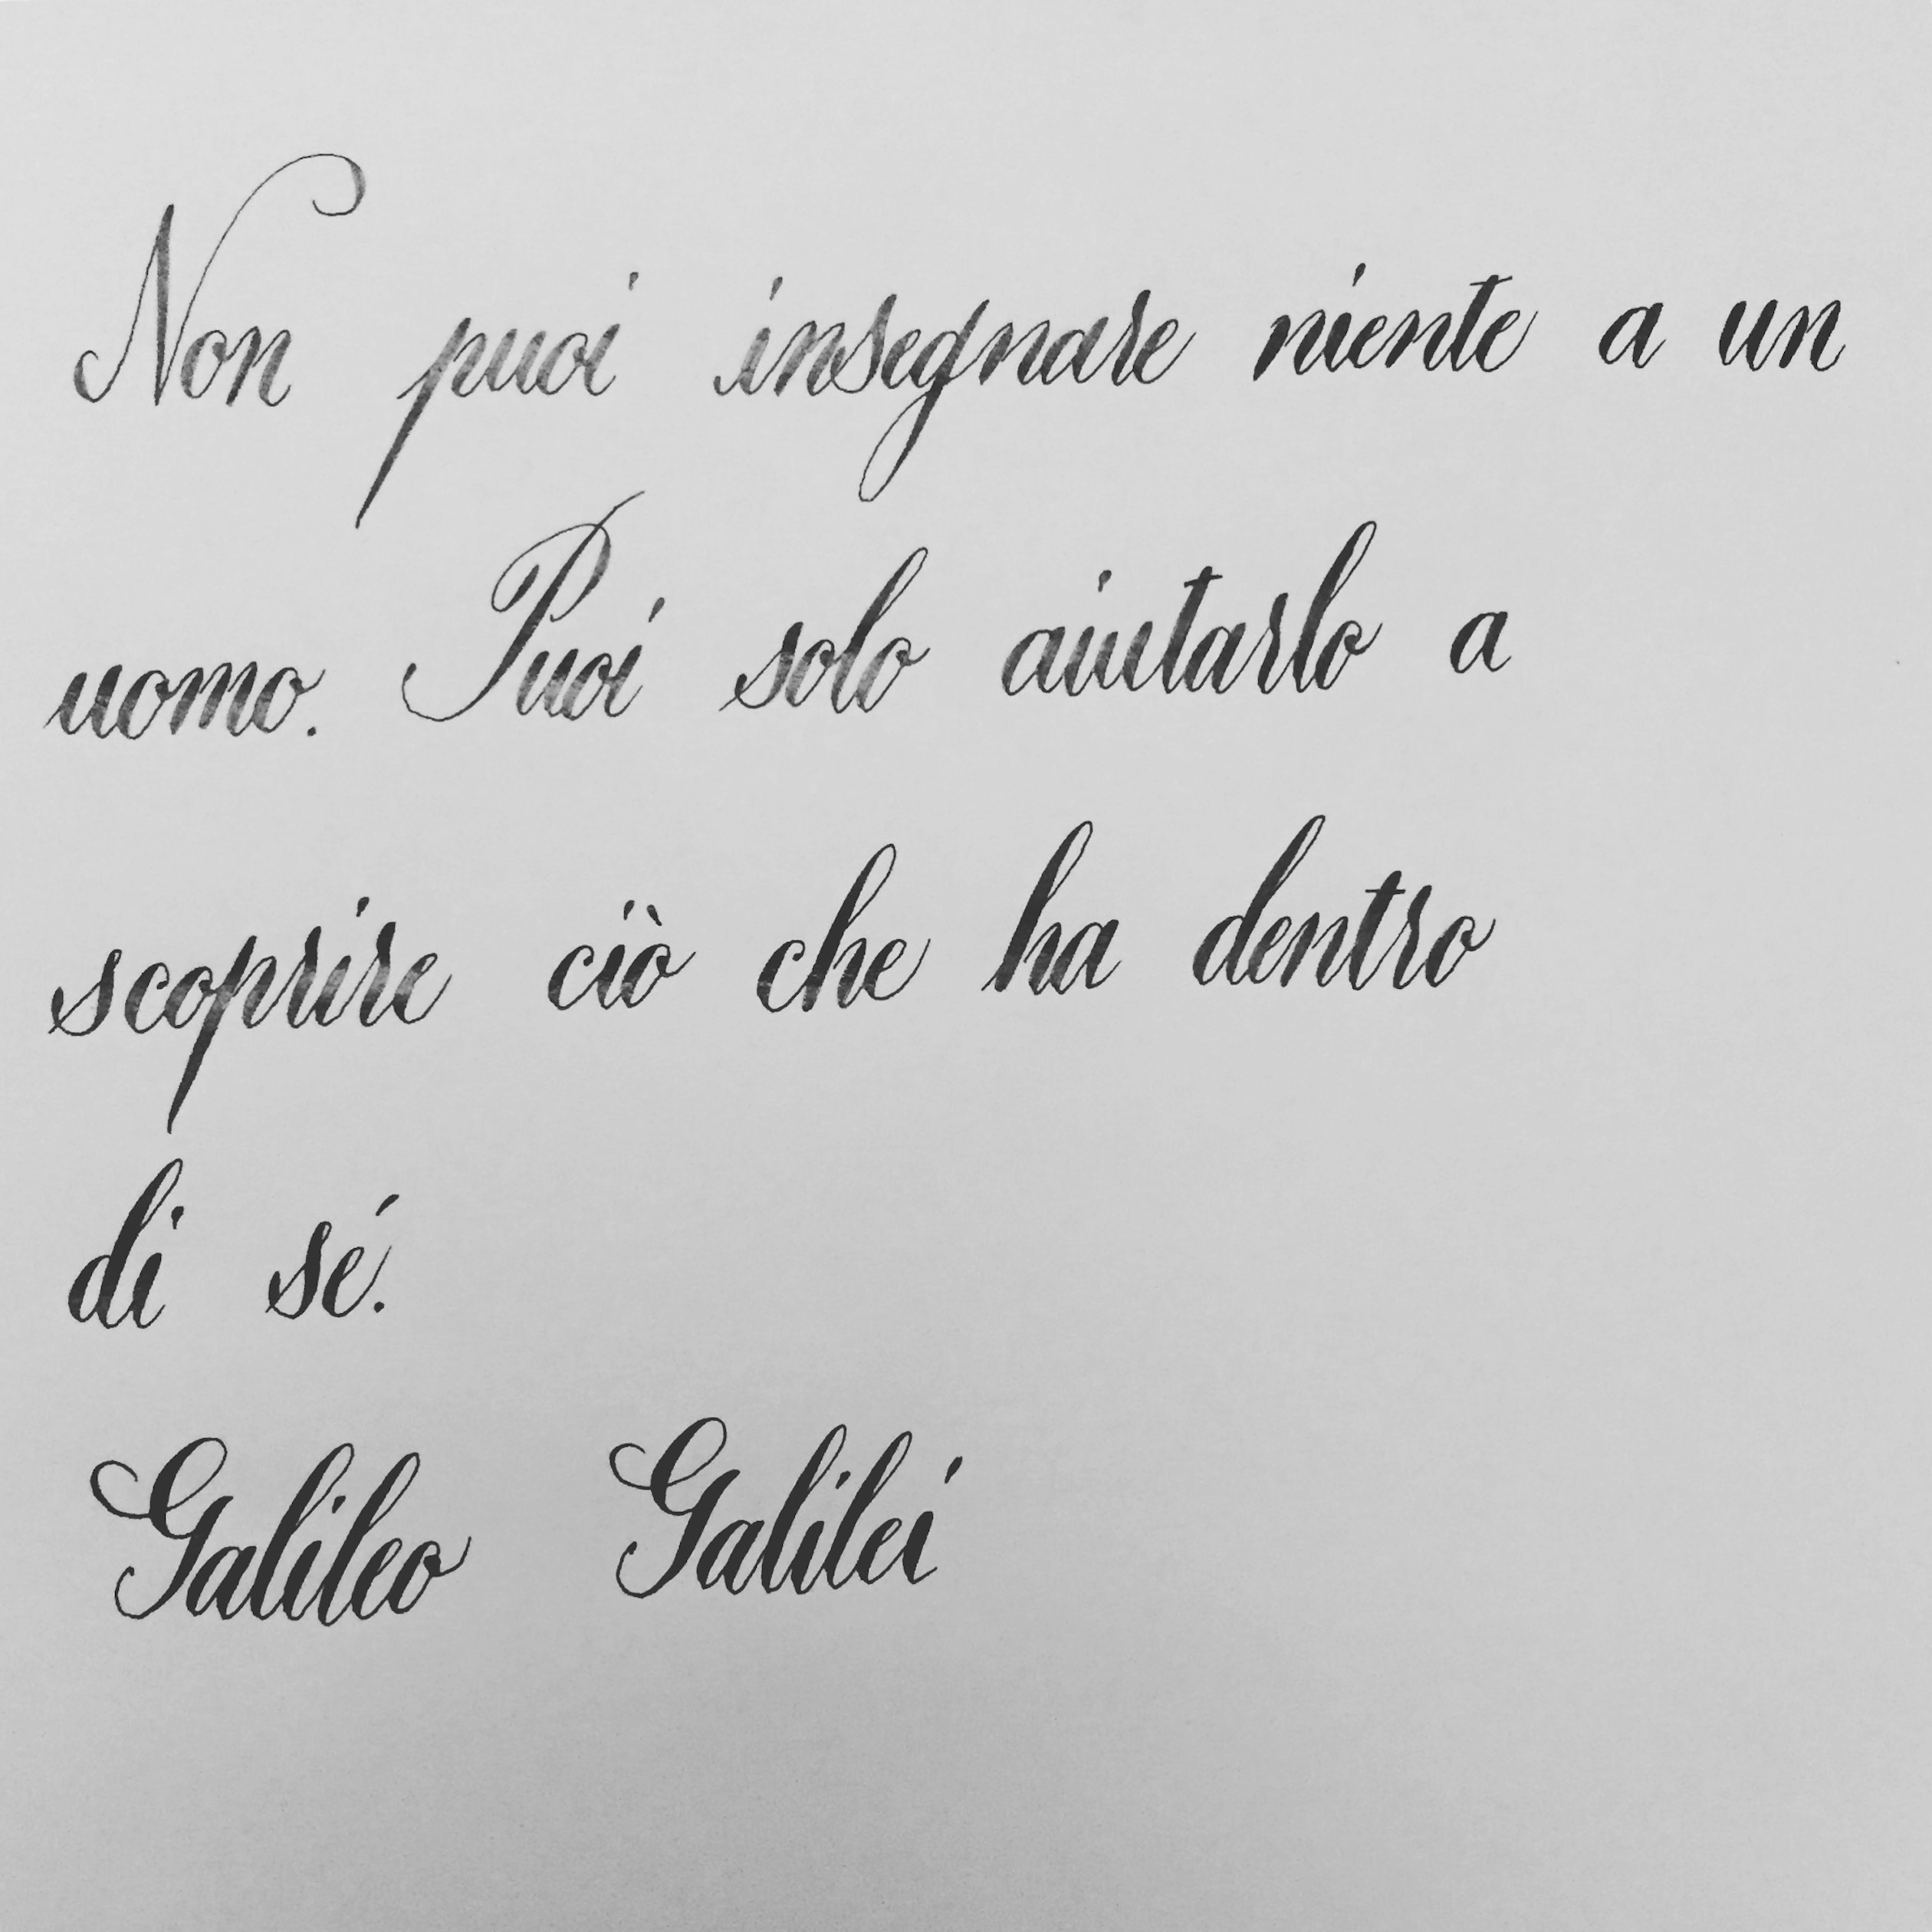 Non puoi insegnare niente a un
uomo. Puoi solo aiutarlo a
scoprire ciò che ha dentro
di sé.
Galileo Galilei